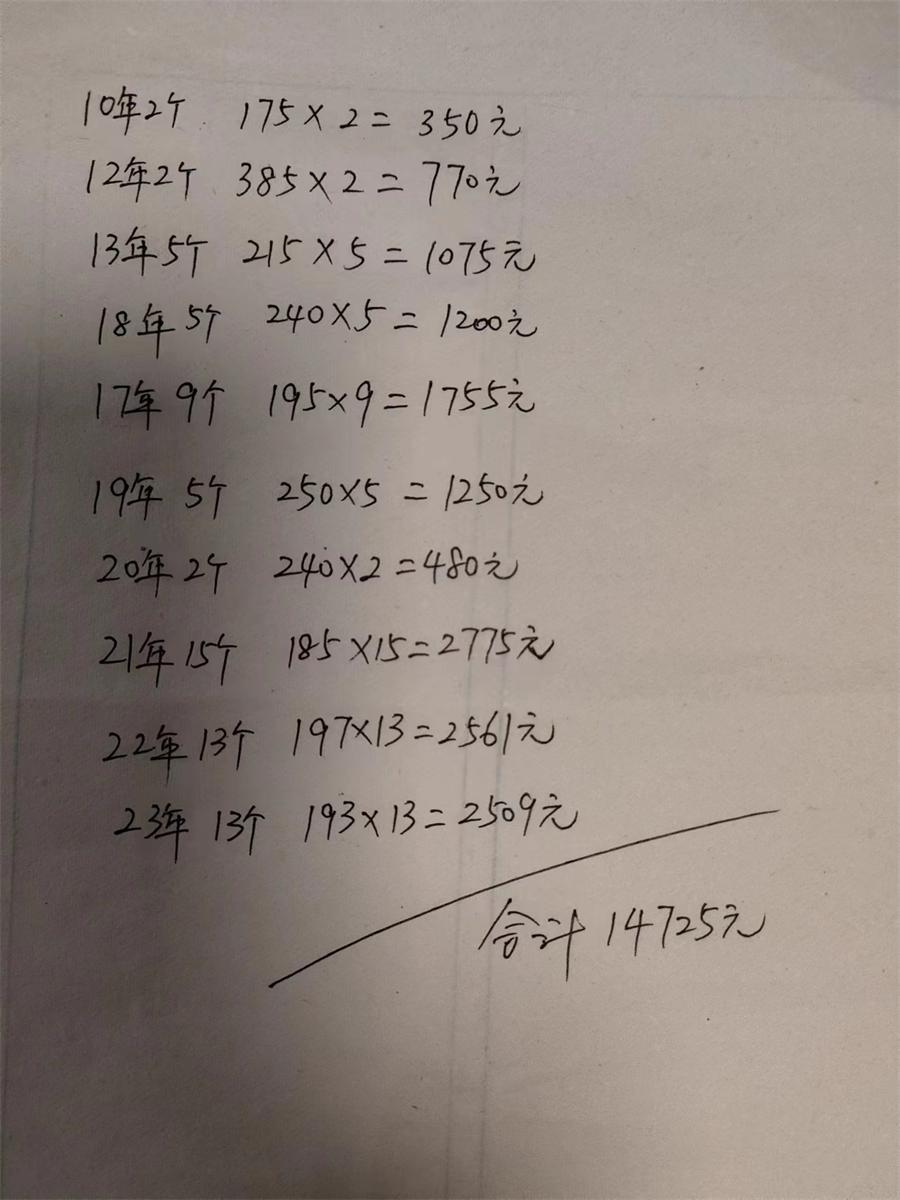 10年2个 175×2=350元
12年2个 385×2=770元
13年5个 215×5=1075元
18年5个 240×5=1200元
17年9个 195×9=1755元
19年5个 250×5=1250元
20年2个 240×2=480元
21年15个 185×15=2775元
22年13个 197×13=2561元
23年13个 193×13=2509元
合计14725元